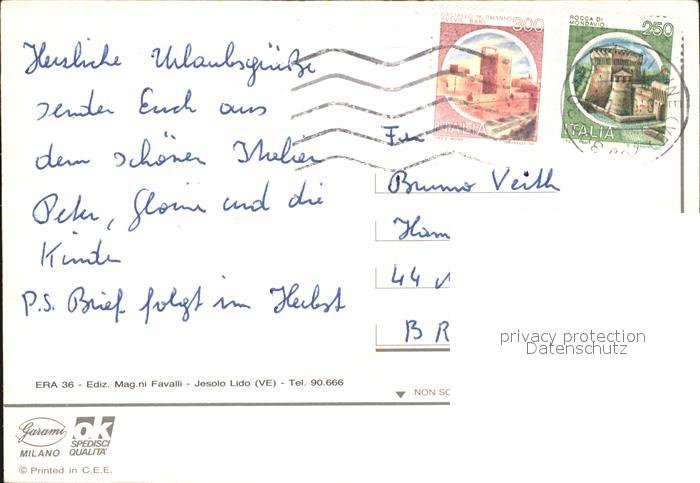 Herzliche Urlaubsgrüße
senden Euch aus
dem schönen Italien
Peter, und die
Kinder
P.S. Brief folgt im Herbst
CASTELLO NORMANNO
SVEVO BARI
300
ITALIA
ROCCA DI
MONDAVIO
250
ITALIA
Bruno Veith
Ham
44
B R
privacy protection
Datenschutz
ERA 36 - Ediz. Mag.ni Favalli - Jesolo Lido (VE) - Tel. 90.666
NON SC
Garami
MILANO
ok
SPEDISCI
QUALITA'
© Printed in C.E.E.